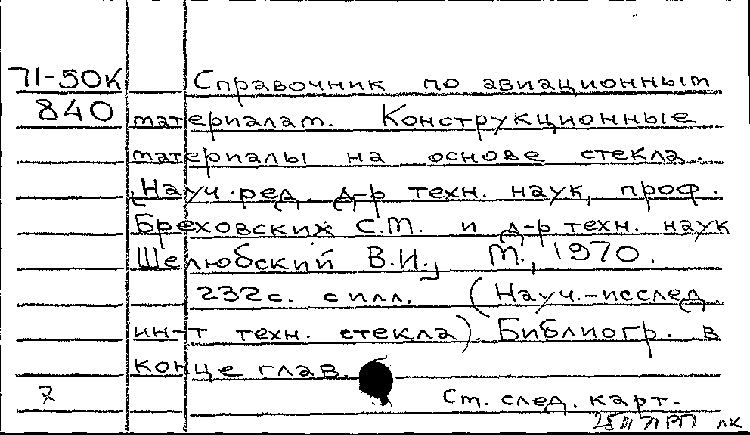 71-50К Справочник по авиационным
840 материалам. Конструкционные
материалы на основе стекла.
[Науч. ред. д-р техн. наук, проф.
Бреховских С.М. и д-р техн. наук
Шелюбский В.И.] М., 1970.
232с. с илл. (Науч.-исслед.
ин-т техн. стекла). Библиогр. в
конце глав.
Ст. след. карт.
лк